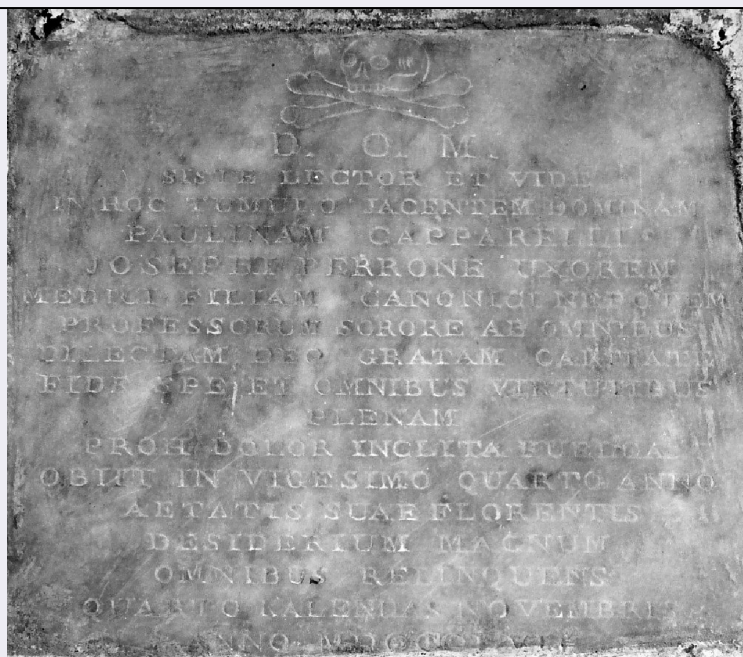 D. O. M.
SISTE LECTOR ET VIDE
IN HOC TUMULO JACENTEM DOMINAM
PAULINAM CAPPARELLI
JOSEPHI PERRONE UXOREM
MEDICI FILIAM CANONICI NEPOTEM
PROFESSORUM SORORE AB OMNIBUS
DILECTAM DEO GRATAM CARITATE
FIDE SPE ET OMNIBUS VIRTUTIBUS
PLENAM
PROH DOLOR INCLITA PUELLA
OBIIT IN VIGESIMO QUARTO ANNO
AETATIS SUAE FLORENTIS
DESIDERIUM MAGNUM
OMNIBUS RELINQUENS
QUARTO KALENDAS NOVEMBRIS
ANNO